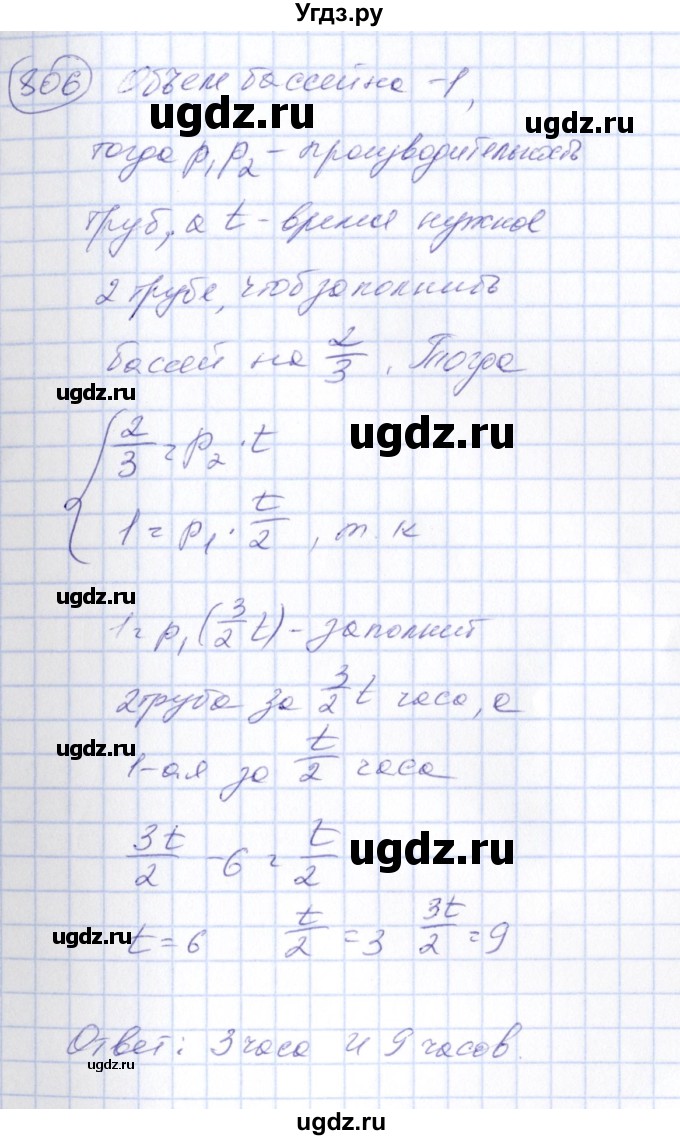 Угдз.ру
806 Объем бассейна -1,
ugdz.ru ugdz.ru
тогда p₁p₂ - производительность
труб, а t - время нужное
2 трубе, чтоб заполнить
бассей на 2/3. Тогда
ugdz.ru
2/3 = p₂ · t
ugdz.ru
1 = p₁ · t/2, т. к
ugdz.ru
1 = p₁ (3/2 t) - заполнит
2 труба за 3/2 t часа, а
ugdz.ru
1-ая за t/2 часа
3t/2 - 6 = t/2
ugdz.ru
ugdz.ru
t = 6 t/2 = 3 3t/2 = 9
Ответ: 3 часа и 9 часов.
ugdz.ru
ugdz.ru